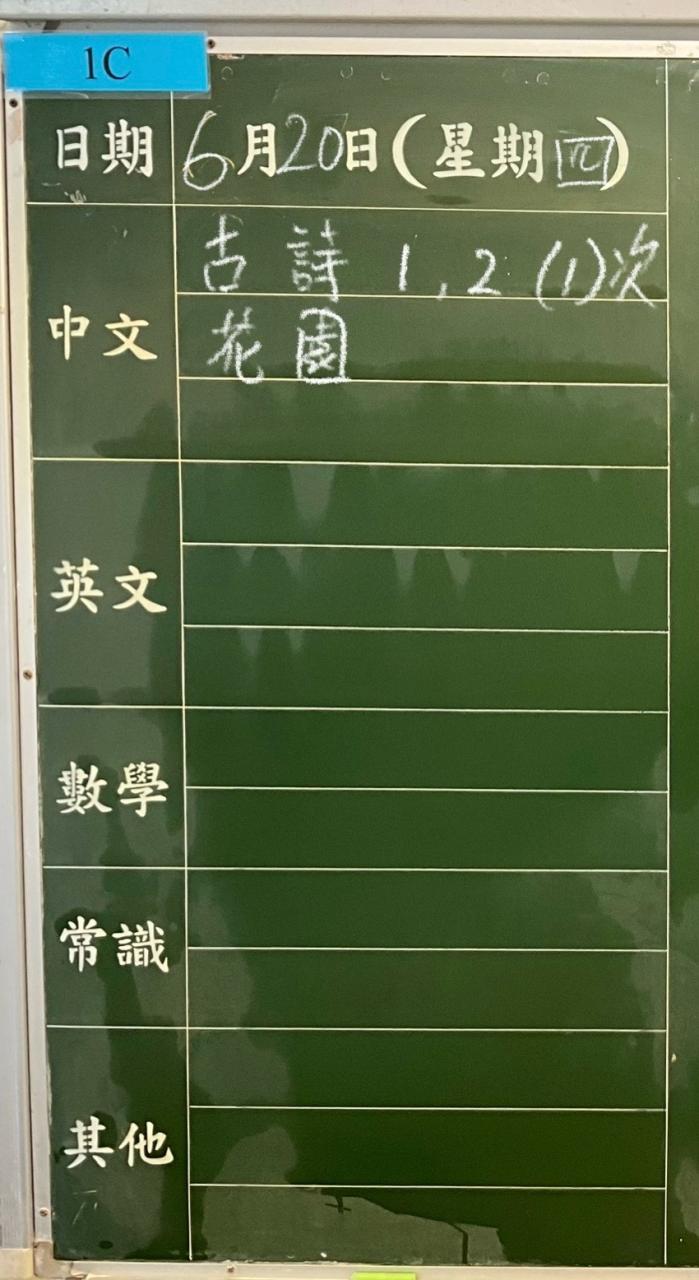 1C
日期 6月20日(星期四)
古詩 1,2 (1)次
中文
花園
英文
數學
常識
其他